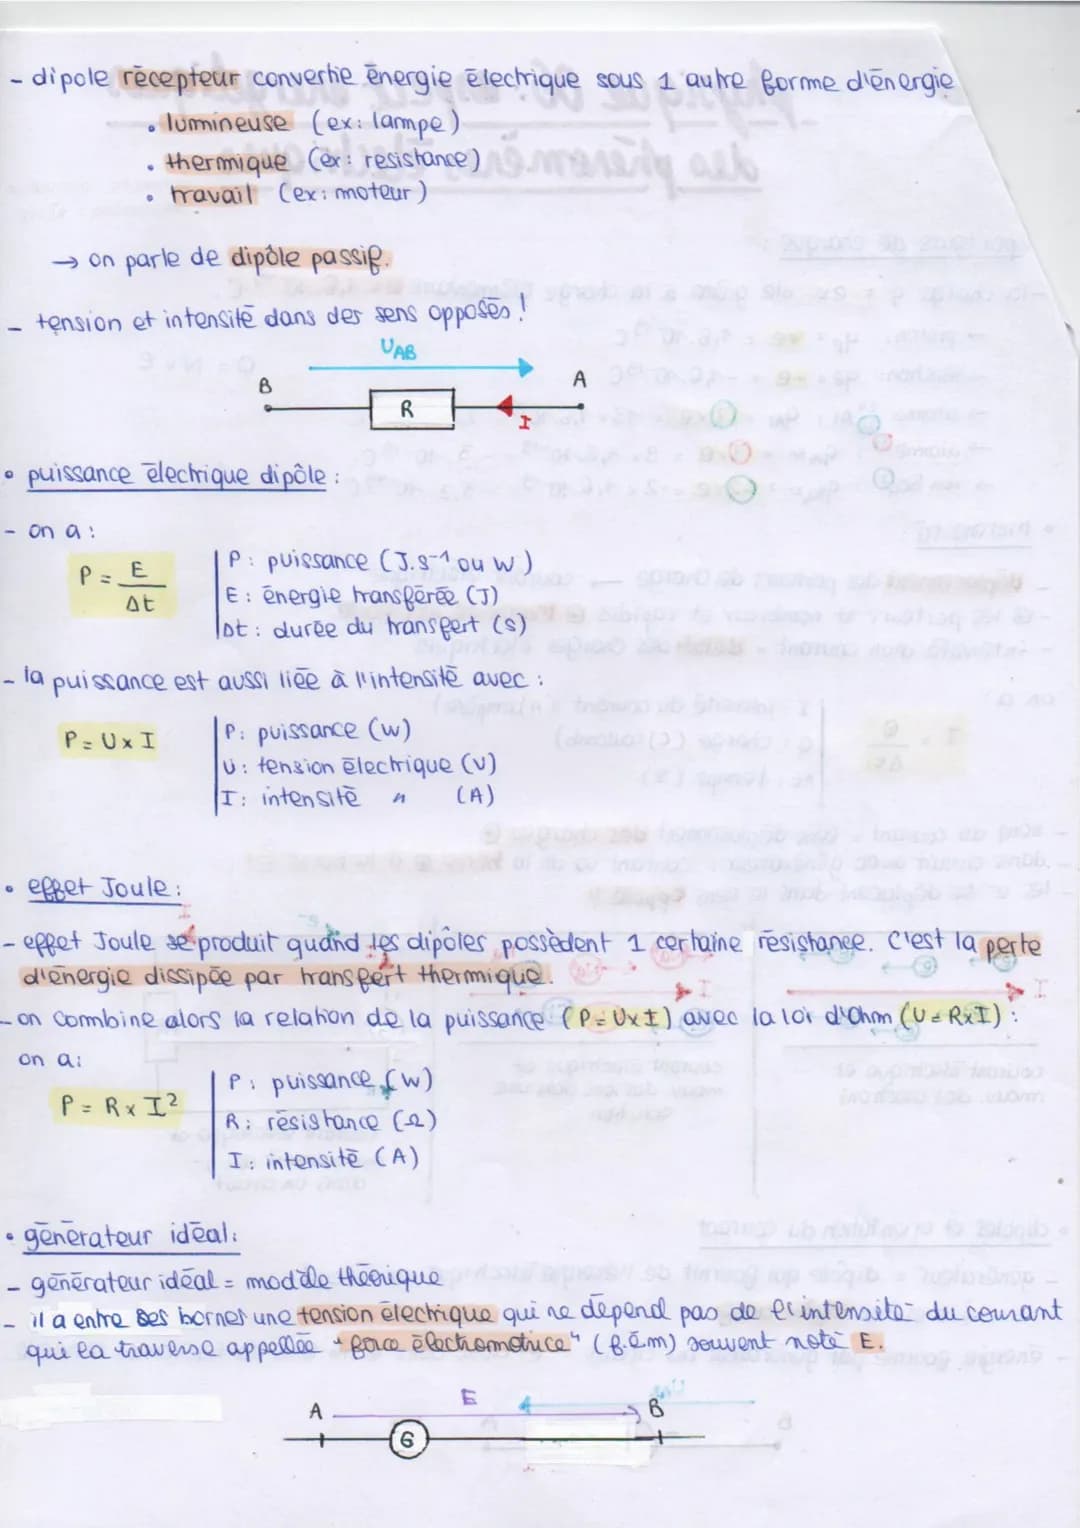 - dipole récepteur convertie énergie électrique sous 1 autre forme d'énergie
• lumineuse (ex: lampe)
• thermique (ex: resistance)
• travail (ex: moteur)
→ on parle de dipôle passif.
- tension et intensité dans des sens opposés !
UAB
B
A
R
I
• puissance électrique dipôle :
- on a :
P = E / Δt
P : puissance (J.s⁻¹ ou W)
E : énergie transférée (J)
Δt : durée du transfert (s)
- la puissance est aussi liée à l'intensité avec :
P = U x I
P : puissance (W)
U : tension électrique (V)
I : intensité " (A)
• effet Joule :
- effet Joule se produit quand les dipôles possèdent 1 certaine résistance. C'est la perte
d'énergie dissipée par transfert thermique.
- on combine alors la relation de la puissance (P = U x I) avec la loi d'Ohm (U = R x I) :
on a :
P = R x I²
P : puissance (W)
R : résistance (Ω)
I : intensité (A)
• générateur idéal :
- générateur idéal = modèle théorique
- il a entre ses bornes une tension électrique qui ne dépend pas de l'intensité du courant
qui la traverse appellée "force électromotrice" (f.é.m) souvent noté E.
E
A
B
G